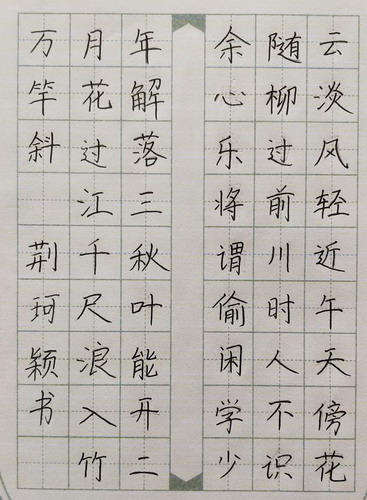 云淡风轻近午天傍花
随柳过前川时人不识
余心乐将谓偷闲学少
年解落三秋叶能开二
月花过江千尺浪入竹
万竿斜 荆珂颖书